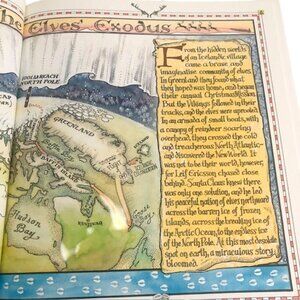 The Elves' Exodus
NORTH POLE
GREENLAND
BAFFIN
Hudson
Bay
From the hidden worlds
of an Icelandic village
came a brave and
imaginative community of elves
to Greenland and they found what
they hoped was home, and began
their annual Christmas Mission.
But the Vikings followed in their
tracks, and the elves were forced into
an armada of small boats, with
a canopy of reindeer soaring
overhead, they crossed the cold
and treacherous North Atlantic
and discovered the New World. It
was not to be their world, however,
for Leif Ericson chased close
behind. Santa Claus knew there
was only one solution, and he led
his peaceful nation of elves northward
across the barren ice of frozen
islands, across the breaking ice of
the Arctic Ocean, to the endless ice
of the North Pole. At this most desolate
spot on earth, a miraculous story
bloomed.